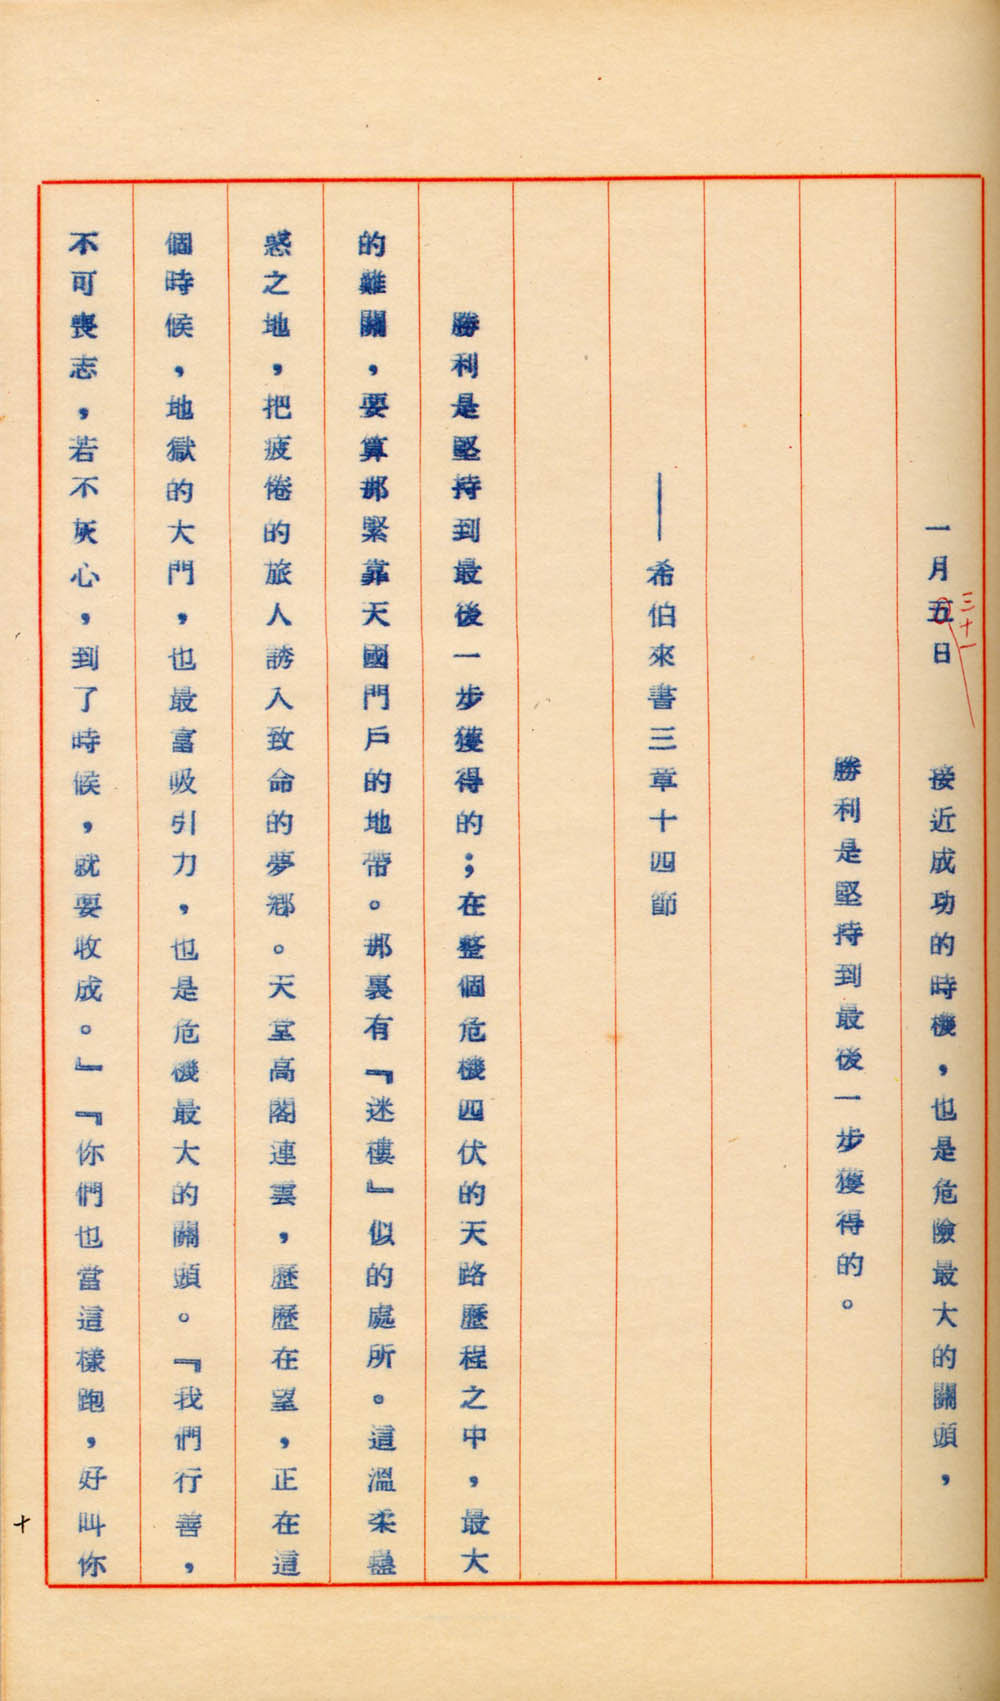 一月五日　接近成功的時機，也是危險最大的關頭，
三十一
勝利是堅持到最後一步獲得的。
——希伯來書三章十四節
勝利是堅持到最後一步獲得的；在整個危機四伏的天路歷程之中，最大
的難關，要算那緊靠天國門戶的地帶。那裏有『迷樓』似的處所。這溫柔蠱
惑之地，把疲倦的旅人誘入致命的夢鄉。天堂高閣連雲，歷歷在望，正在這
個時候，地獄的大門，也最富吸引力，也是危機最大的關頭。『我們行善，
不可喪志，若不灰心，到了時候，就要收成。』『你們也當這樣跑，好叫你
十